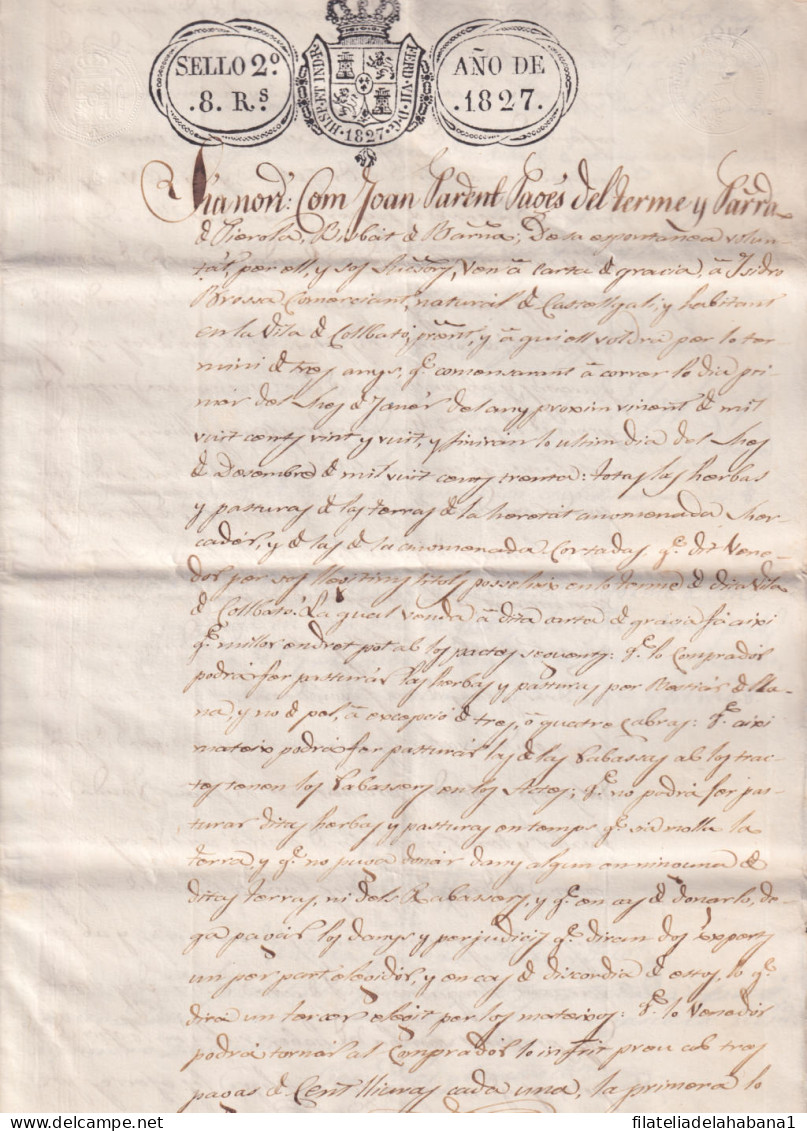 SELLO 2º
.8. R.s
HISP. ET IND. R. FERD. VII. D. G. 1827
AÑO DE
.1827.
Sia nori: Com Joan Parent Pagés del terme y Parrª
de Pierola, Bisbat de Barnª; De sa espontanea volun-
tat, per ell, y sos, ven á carta de gracia, á Isidro
Brossa Comerciant, natural de Castellgali, y habitant
en la Vila de Collbató, present, y á qui ell voldrá per lo ter-
mini de tres anys, q.e comensarán á correr lo dia pri-
mer del mes de Janér del any proxim vinent de mil
vuit cents vint y vuit, y finirán lo ultim dia del mes
de Desembre de mil vuit cents trenta: totas las herbas
y pasturas de las terras de la heretat anomenada Mer-
cadér, y de las de la anomenada Cortadas q.e dit Vene-
dor per sos llegitims titols posseheix en lo terme de dita Vila
de Collbató. La qual venda á dita carta de gracia fá aixi
q.e millor en dret pot ab los pactes seguents: q.e lo Comprador
podrá fer pasturar las herbas y pasturas per Bestiár de lla-
na, y no de pel, á excepció de tres, ó quatre Cabras: q.e aixi
mateix podrá fer pasturár las de las Rabassas ab los trac-
tes tenen los Rabassers en los Actes; q.e no podrá fer pas-
turar ditas herbas y pasturas en temps q.e sia molla la
terra, y q.e no puga donar dany algun en ninguna de
ditas terras, ni dels Rabassers, y q.e en cas de donarlo, de-
ga pagár los danys y perjudicis q.e dirán dos experts
un per part elegidor, y en cas de discordia de estos, lo q.e
dirá un tercer elegit per los mateixos: q.e lo Venedor
podrá tornar al Comprador lo infrit preu ab tres
pagas de Cent lliuras cada una, la primera lo
filateliadelahabana1